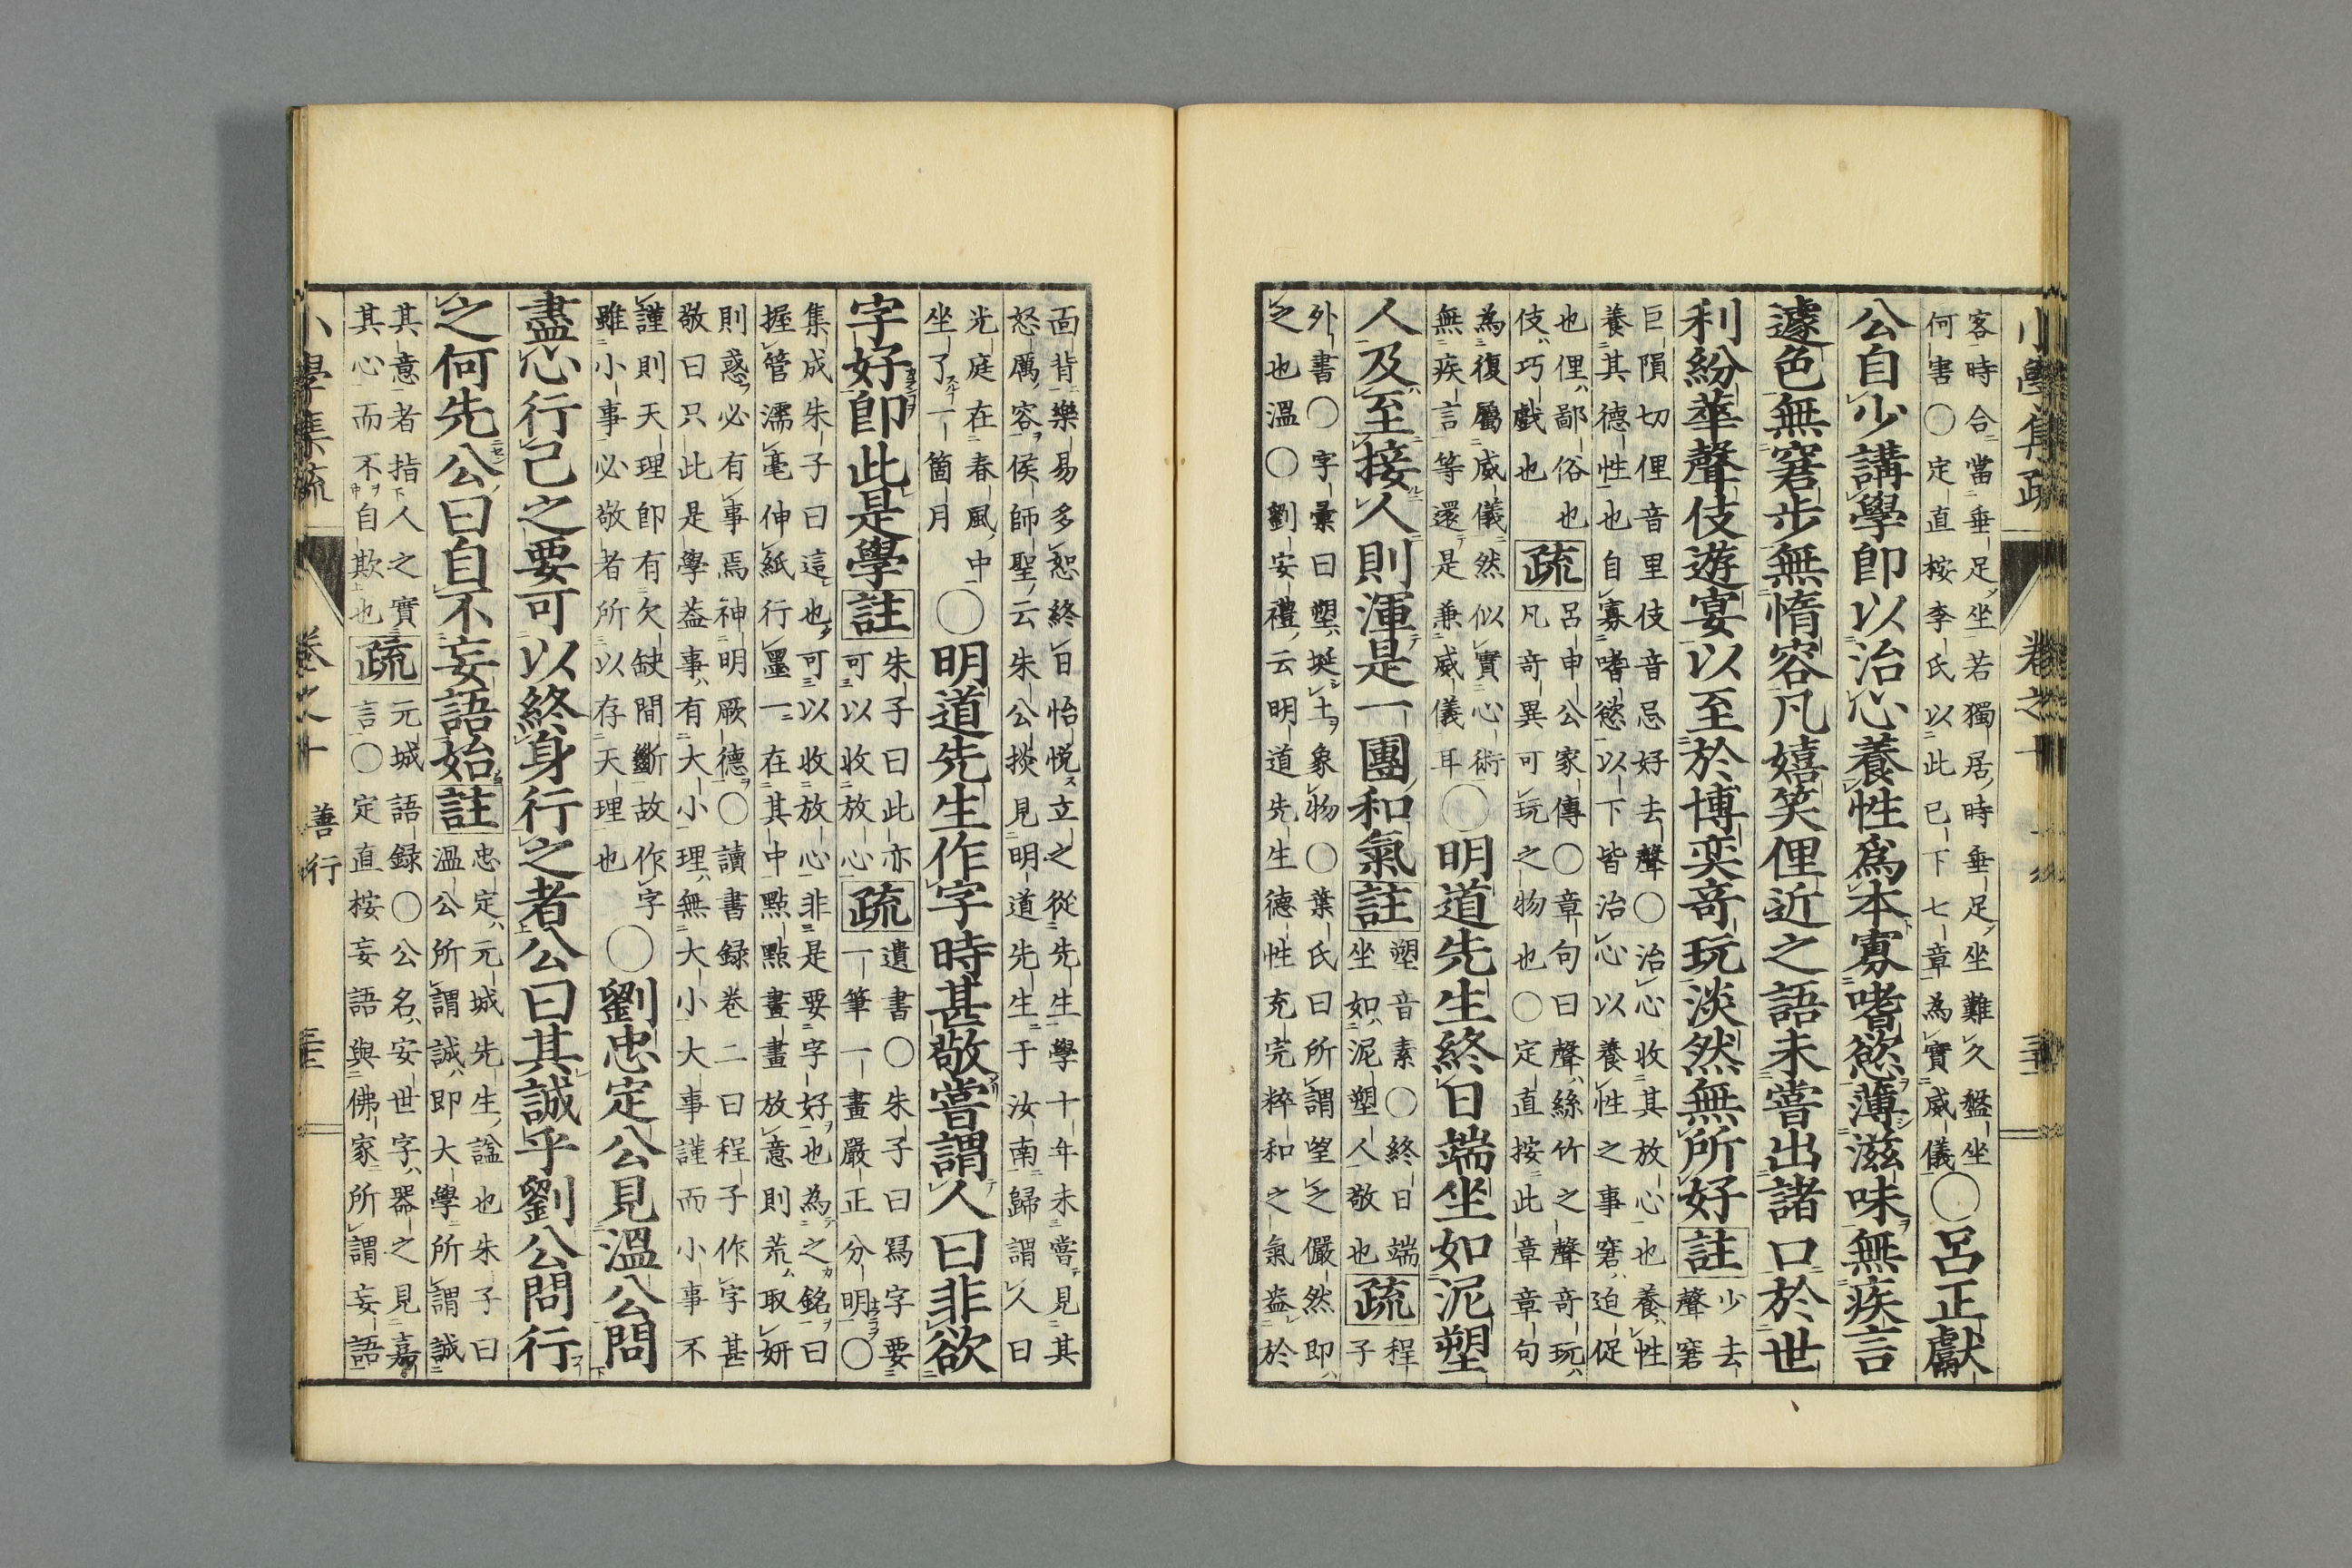 小學集疏 卷之十
客時合當垂足坐若獨居時垂足坐難久盤坐
何害○定直桉李氏以此已下七章為實威儀
○呂正獻
公自少講學即以治心養性爲本寡嗜慾薄滋味無疾言
遽色無窘步無惰容凡嬉笑俚近之語未嘗出諸口於世
利紛華聲伎遊宴以至於博奕奇玩淡然無所好註
少去
聲窘
巨隕切俚音里伎音忌好去聲○治心收其放心也養性
養其德性也自寡嗜慾以下皆治心以養性之事窘迫促
也俚鄙俗也
伎巧戲也
疏
呂申公家傳○章句曰聲絲竹之聲奇玩
凡奇異可玩之物也○定直按此章章句
為復屬威儀然似實心術
無疾言等還是兼威儀耳
○明道先生終日端坐如泥塑
人及至接人則渾是一團和氣註
塑音素○終日端
坐如泥塑人敬也
疏
程
子
外書○字彙曰塑埏土象物○葉氏曰所謂望之儼然即
之也溫○劉安禮云明道先生德性充完粹和之氣盎於
面背樂易多恕終日怡悅立之從先生學十年未嘗見其
怒厲容侯師聖云朱公掞見明道先生于汝南歸謂人曰
光庭在春風中
坐了一箇月
○明道先生作字時甚敬嘗謂人曰非欲
字好即此是學註
朱子曰此亦
可以收放心
疏
遺書○朱子曰寫字要
一筆一畫嚴正分明○
集成朱子曰這也可以收放心非是要字好也為之銘曰
握管濡毫伸紙行墨一在其中點點畫畫放意則荒取妍
則惑必有事焉神明厥德○讀書録卷二曰程子作字甚
敬曰只此是學葢事有大小理無大小大事謹而小事不
謹則天理即有欠缺間斷故作字
雖小事必敬者所以存天理也
○劉忠定公見溫公問
盡心行己之要可以終身行之者公曰其誠乎劉公問行
之何先公曰自不妄語始註
忠定元城先生諡也朱子曰
溫公所謂誠即大學所謂誠
其意者指人之實
其心而不自欺也
疏
元城語録○公名安世字器之見嘉
言○定直桉妄語與佛家所謂妄語
小學集疏 卷之十 善行